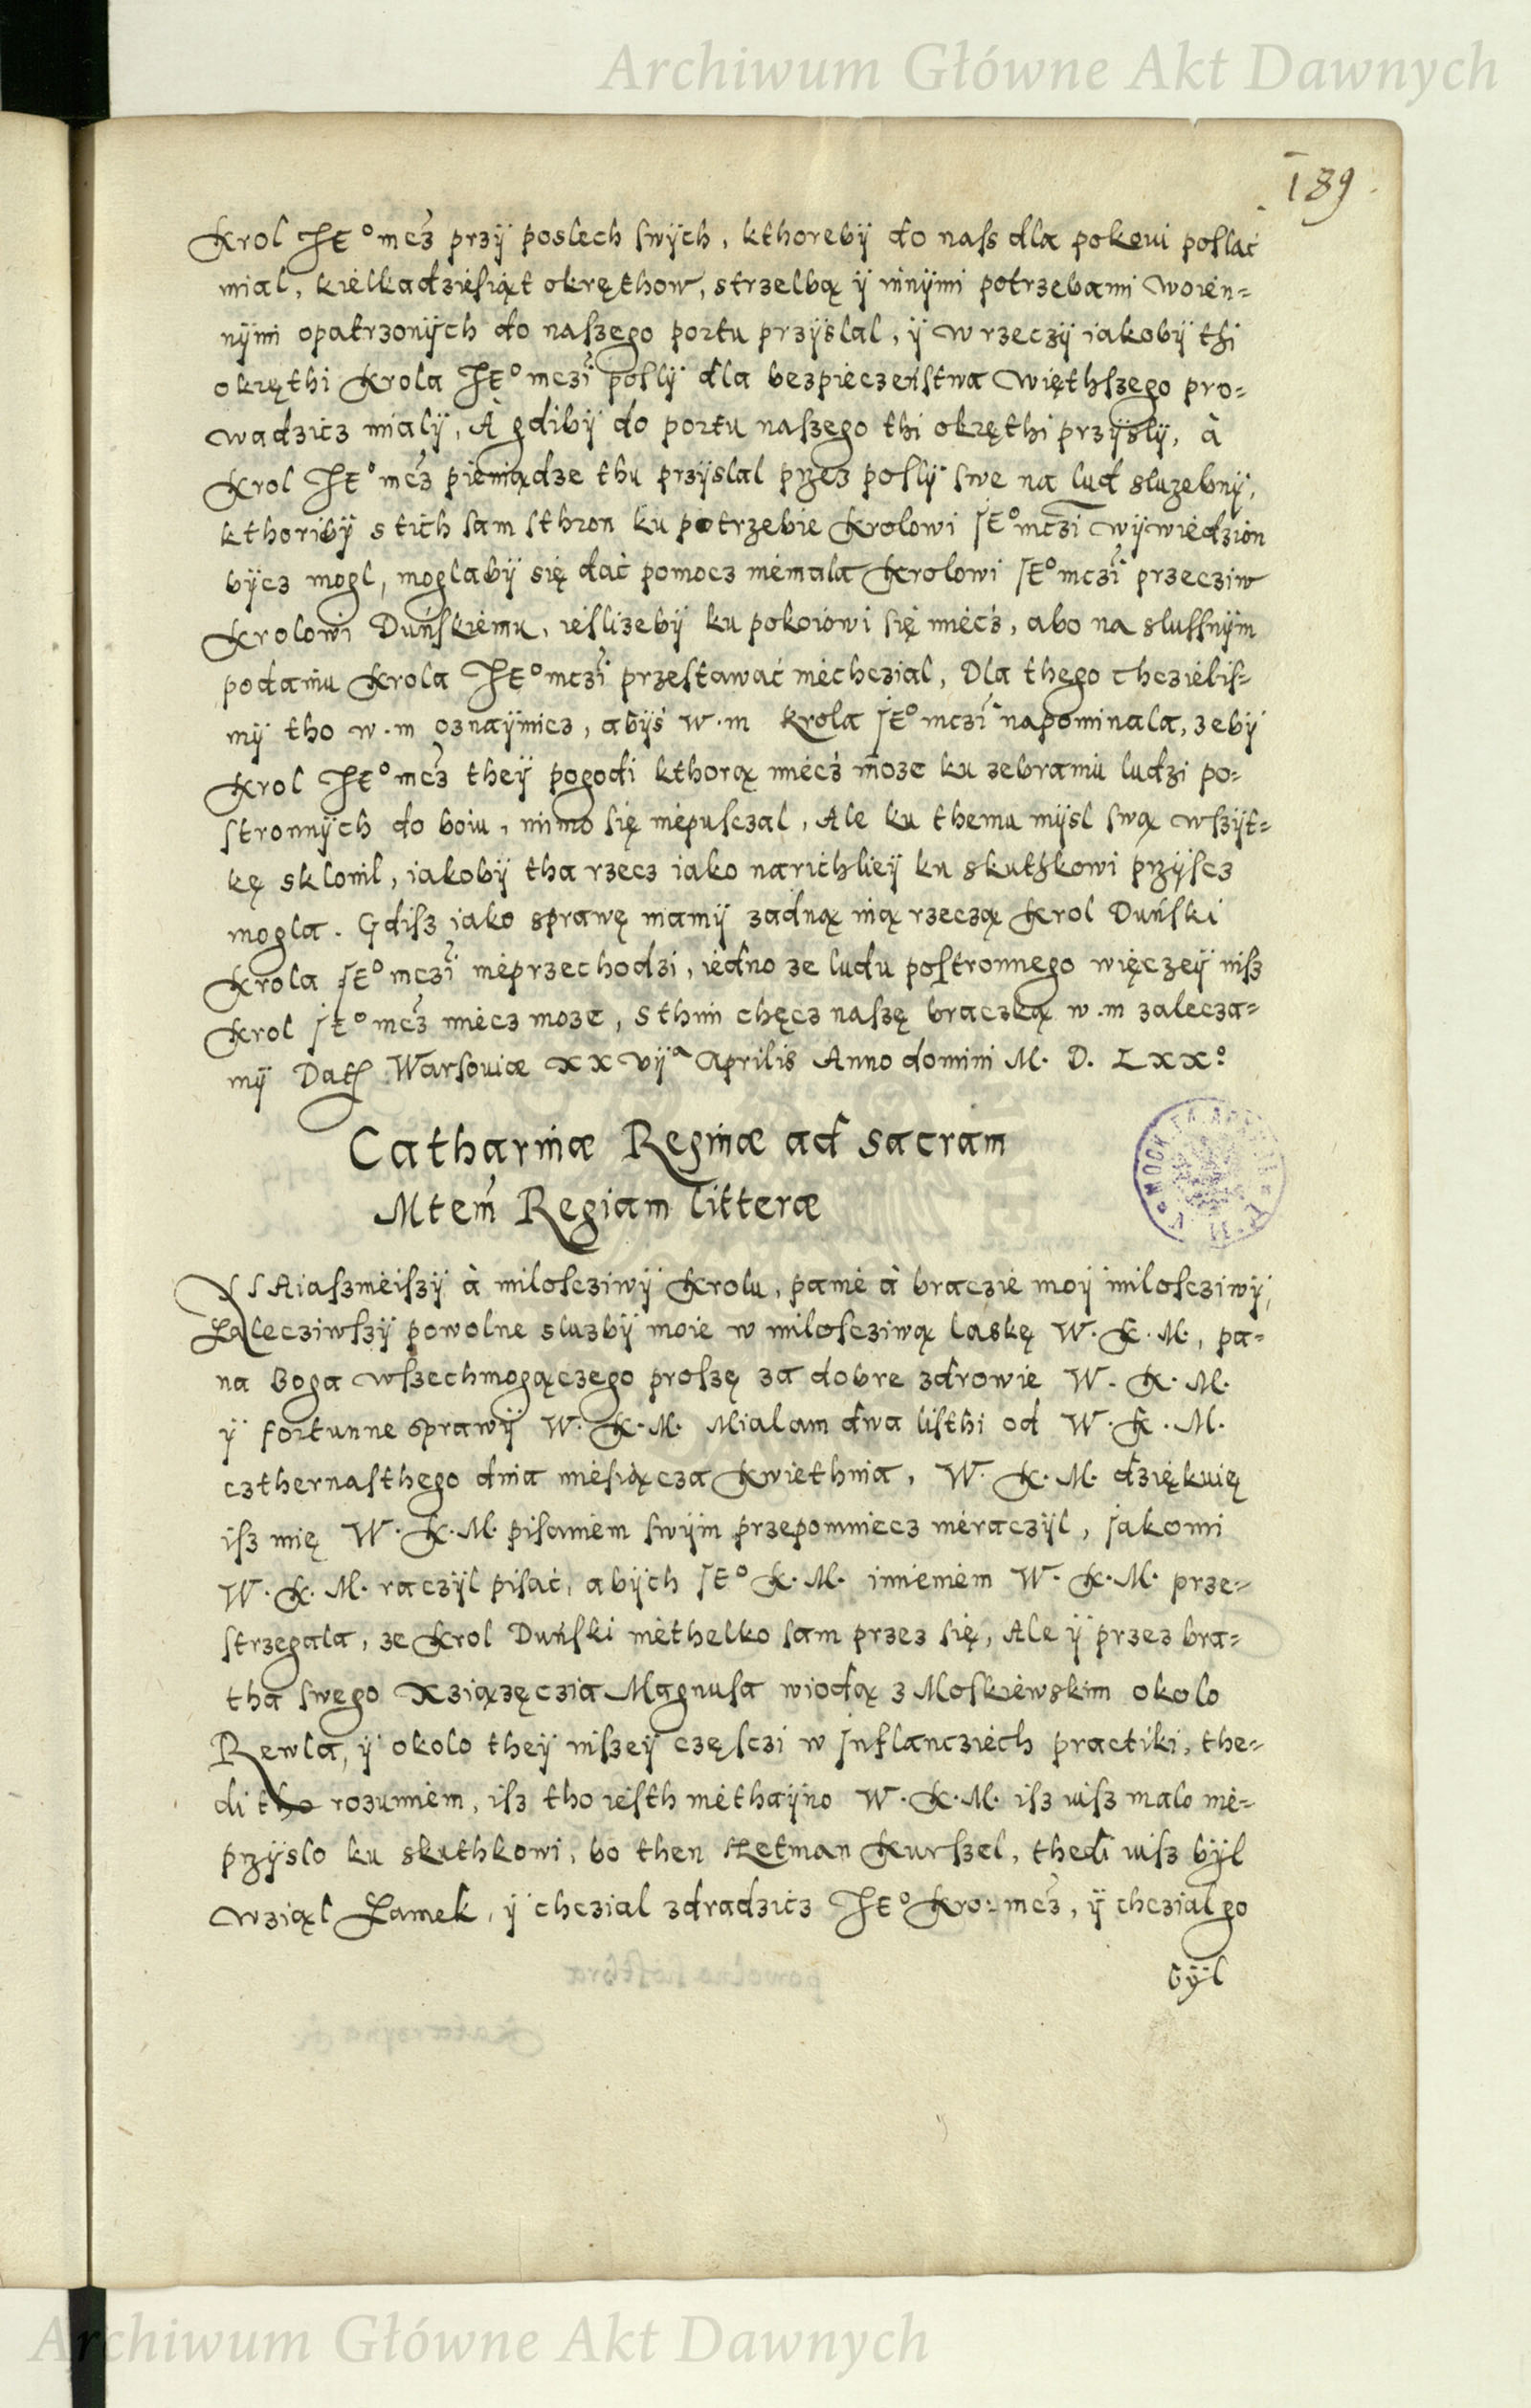 Archiwum Główne Akt Dawnych
189
Krol JE° mcz przÿ poslech swÿch, kthorebÿ do nass dla pokoui poslac
mial, kielkadziesiąt okręthow, strzelbą ÿ innÿmi potrzebami woien-
nÿmi opatrzonÿch do naszego portu przÿslal, ÿ w rzeczÿ iakobÿ thi
okręthi Krola JE° mczi poslÿ dla bezpieczeństwa więthszego pro-
wadzicz mialÿ, A gdibÿ do portu naszego thi okręthi przÿslÿ, à
Krol JE° mcz pieniądze thu przÿslal przez poslÿ swe na lud sluzebnÿ,
kthoribÿ s tich sam sthron ku potrzebie Krolowi JE° mczi wÿwiedzion
bÿcz mogl, moglabÿ się dać pomocz niemala Krolowi JE° mczi przecziw
Krolowi Duńskiemu, ieslizebÿ ku pokoiowi się miecz, abo na slussnÿm
podaniu Krola JE° mczi przestawać niechczial, Dla thego chczielis-
mÿ tho w. m oznaÿmicz, abÿś w. m Krola JE° mczi napominala, zebÿ
Krol JE° mcz theÿ pogodi kthorą miecz moze ku zebraniu ludzi po-
stronnÿch do boiu, mimo się niepusczal, Ale ku themu mÿsl swą wszÿt-
kę sklonil, iakobÿ tha rzecz iako narichlieÿ ku skuthkowi przÿscz
mogla. Gdisz iako sprawę mamÿ zadną iną rzeczą Krol Duński
Krola JE° mczi nieprzechodzi, iedno ze ludu postronnego więczeÿ nisz
Krol JE° mcz miecz moze, S thim chęcz naszę braczką w. m zalecza-
mÿ Dat Warsouiæ XXVIIª Aprilis Anno domini M. D. LXX°
Catharinæ Reginæ ad sacram
Mtem Regiam litteræ
NAiasznieiszÿ à miloscziwÿ Krolu, panie à braczie moÿ milosczíwÿ,
Zalecziwszÿ powolne sluzbÿ moie w milosczíwą laskę W. K. M., pa-
na Boga wszechmogączego proszę za dobre zdrowie W. K. M.
ÿ fortunne sprawÿ W. K. M. Mialam dwa listhi od W. K. M.
czthernasthego dnia miesiącza Kwiethnia, W. K. M. dziękuię
isz mię W. K. M. pisaniem swÿm przepomniecz nieraczÿl, Jakomi
W. K. M. raczÿl pisać, abÿch JE° K. M. imieniem W. K. M. prze-
strzegala, ze Krol Duński niethelko sam przez się, Ale ÿ przez bra-
tha swego Xziązęczia Magnusa wiodą z Moskiewskim okolo
Rewla, ÿ okolo theÿ niszeÿ częsczi w Jnflancziech practiki, the-
di tho rozumiem, isz tho iesth niethaÿno W. K. M. isz iusz malo nie-
przÿslo ku skuthkowi, bo then Hetman Kurszel, thedi iusz bÿl
wziąl Zamek, ÿ chczial zdradzicz JE° Kro: mcz, ÿ chczial go
bÿl
Archiwum Główne Akt Dawnych